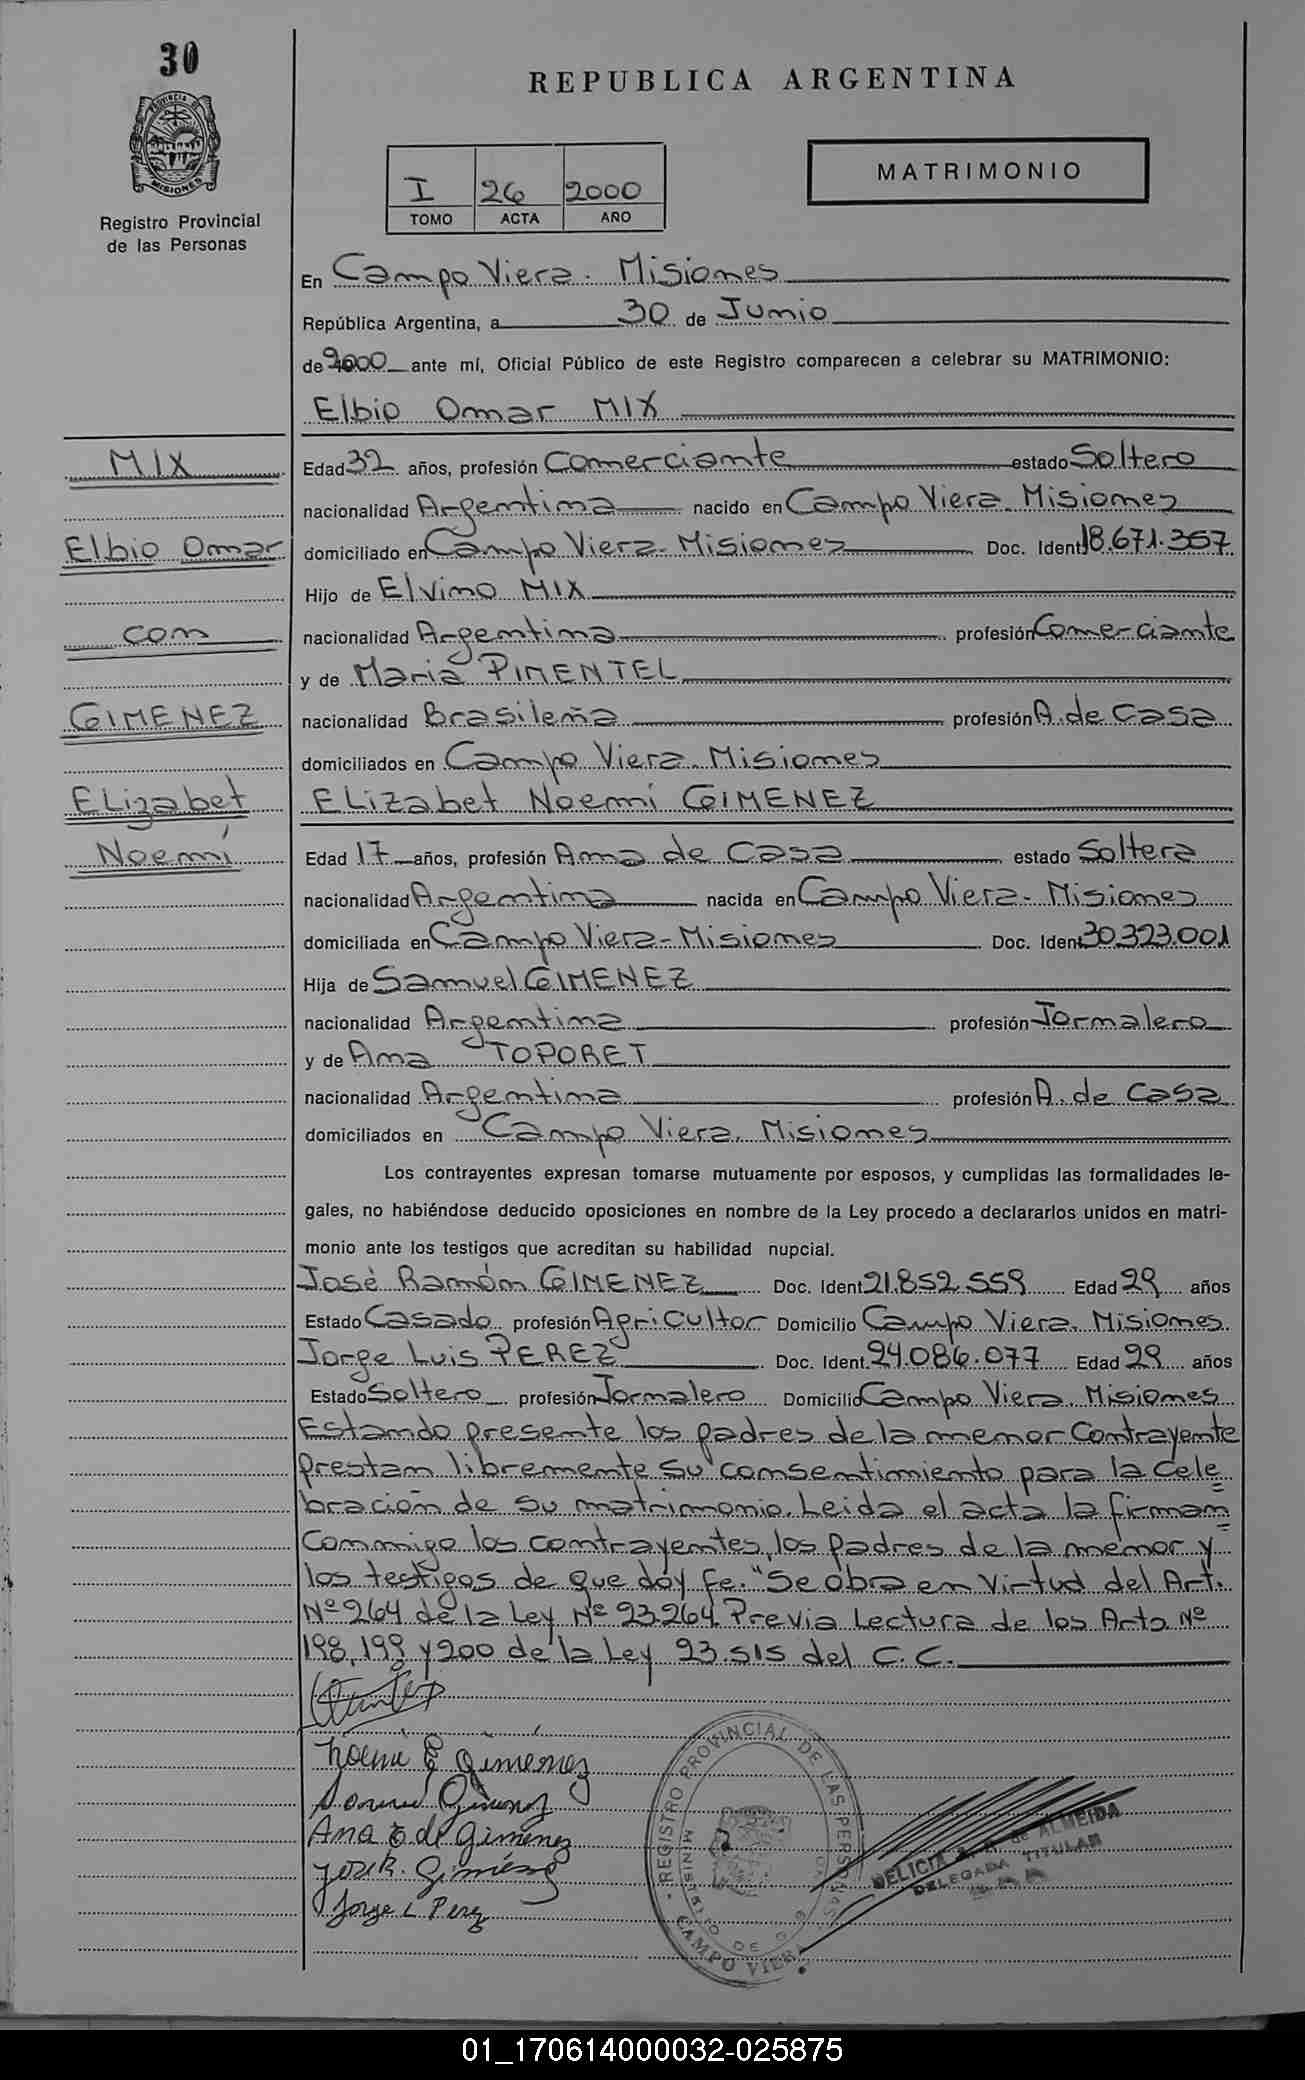 30
PROVINCIA DE
MISIONES
Registro Provincial
de las Personas
REPUBLICA ARGENTINA
I 26 2000
TOMO ACTA AÑO
MATRIMONIO
En Campo Viera. Misiones
República Argentina, a 30 de Junio
de 2000 ante mí, Oficial Público de este Registro comparecen a celebrar su MATRIMONIO:
Elbio Omar MIX
MIX
Edad 32 años, profesión Comerciante estado Soltero
nacionalidad Argentina nacido en Campo Viera. Misiones
Elbio Omar
domiciliado en Campo Viera. Misiones Doc. Ident 18.671.357
Hijo de Elvino MIX
con
nacionalidad Argentina profesión Comerciante
y de Maria PIMENTEL
GIMENEZ
nacionalidad Brasileña profesión A. de Casa
domiciliados en Campo Viera. Misiones
ELizabet
ELizabet Noemí GIMENEZ
Noemí
Edad 17 años, profesión Ama de Casa estado Soltera
nacionalidad Argentina nacida en Campo Viera- Misiones
domiciliada en Campo Viera- Misiones Doc. Ident 30.323.001
Hija de Samuel GIMENEZ
nacionalidad Argentina profesión Jornalero
y de Ana TOPORET
nacionalidad Argentina profesión A. de Casa
domiciliados en Campo Viera. Misiones
Los contrayentes expresan tomarse mutuamente por esposos, y cumplidas las formalidades le-
gales, no habiéndose deducido oposiciones en nombre de la Ley procedo a declararlos unidos en matri-
monio ante los testigos que acreditan su habilidad nupcial.
José Ramón GIMENEZ Doc. Ident 21.852.559 Edad 29 años
Estado Casado profesión Agricultor Domicilio Campo Viera. Misiones
Jorge Luis PEREZ Doc. Ident. 24.086.077 Edad 29 años
Estado Soltero profesión Jornalero Domicilio Campo Viera. Misiones
Estando presente los padres de la menor Contrayente
prestan libremente su consentimiento para la Cele
bración de su matrimonio. Leida el acta la firman
Conmigo los contrayentes, los padres de la menor y
los testigos de que doy fe. "Se obra en Virtud del Art.
Nº 264 de la Ley Nº 23.264. Previa Lectura de los Arts. Nº
198, 199 y 200 de la Ley 23.515 del C. C.
Noemi E Gimenez
Ana T de Gimenez
Jose R. Gimenez
Jorge L Perez
REGISTRO PROVINCIAL DE LAS PERSONAS
MINISTERIO DE G
CAMPO VIERA
DELICIA de ALMEIDA
DELEGADA TITULAR
01_170614000032-025875